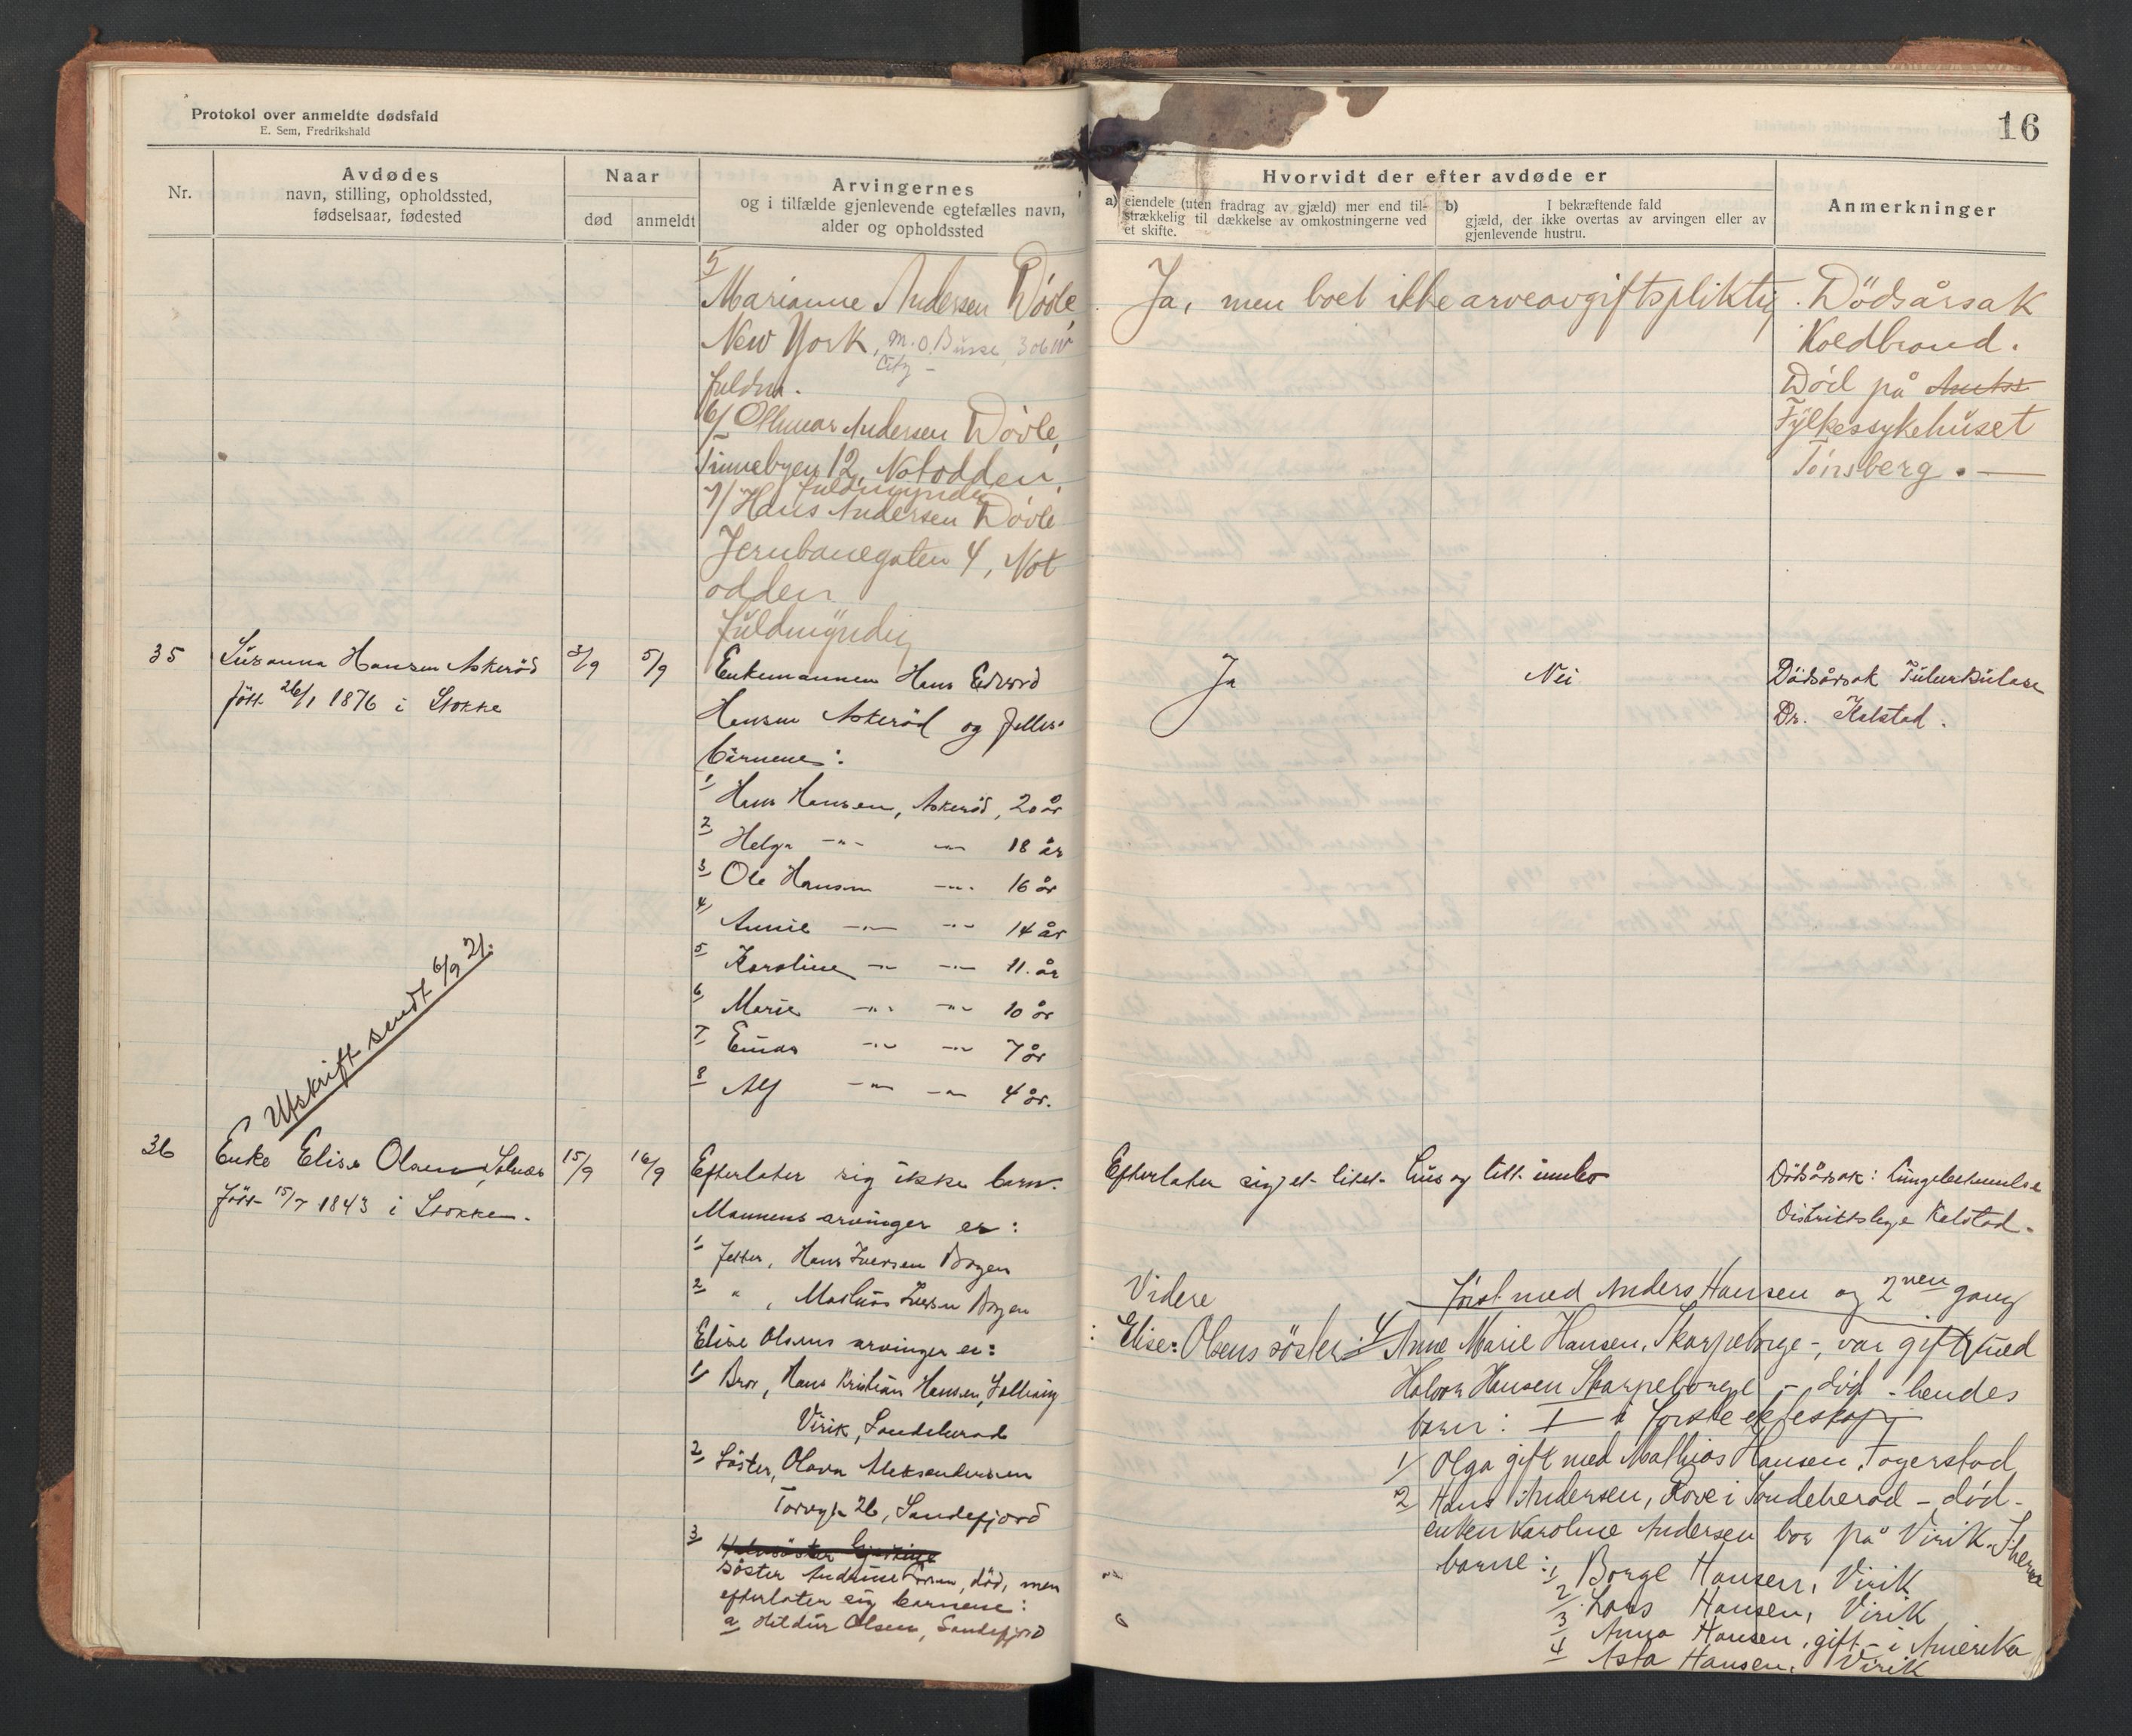 Protokol over anmeldte dødsfald
E. Sem, Fredrikshald
Nr.
Avdødes
navn, stilling, opholdssted,
fødselsaar, fødested
Naar
død
anmeldt
Arvingernes
og i tilfælde gjenlevende egtefælles navn,
alder og opholdssted
5
Marianne Andersen Døvle
New York, M.O. 
City -
fuldm.
6/ Othmar Andersen Døvle,
Tinnebyen 12, Notodden,
fuldmyndig
7/ Hans Andersen Døvle
Jernbanegaten 4, Not
odden
fuldmyndig
35
Susanna Hansen Askeröd
födt 26/1 1876 i Stokke
3/9
5/9
Enkemannen Hans Edvard
Hansen Askeröd og felles-
börnene:
1 Hans Hansen, Askeröd, 20 år
2 Helga -"- -"- 18 år
3 Ole Hansen -"- 16 år
4 Annie -"- -"- 14 år
5 Karoline -"- -"- 11. år
6 Marie -"- -"- 10 år
7 Einar -"- -"- 7 år
8 Alf -"- -"- 4 år.
Utskrift sendt 6/9 21.
36
Enke Elise Olsen, Solnes
Födt 15/7 1843 i Stokke.
15/9
16/9
Efterlater sig ikke barn.
Mannens arvinger er:
1 Fetter, Hans Iversen Bogen
2 " , Mathias Iversen Bogen
Elise Olsens arvinger er:
1/ Bror, Hans Kristian Hansen,
Virik, Sandeherad
2 Söster, Olava Aleksandersen
Torvgt. 26, Sandefjord
3
söster Andrine Olsen, död, men
efterlater sig barnene:
a Hildur Olsen, Sandefjord
16
Hvorvidt der efter avdøde er
a) eiendele (uten fradrag av gjæld) mer end til-
strækkelig til dækkelse av omkostningerne ved
et skifte.
b) I bekræftende fald
gjæld, der ikke overtas av arvingen eller av
gjenlevende hustru.
Anmerkninger
Ja, men boet ikke arveavgiftspliktig.
Dödsårsak
Koldbrand.
Död på Amts
Fylkessykehuset
Tönsberg.
Ja
Nei
Dödsårsak Tuberkulose
Dr. Kalstad.
Efterlater sig et litet hus og litt innbo
Dödsårsak: Lungebetennelse
Distriktslege Kalstad.
Videre
först med Anders Hansen og 2nen gang
Elise Olsens söster: 4/ Anne Marie Hansen, Skarpeborge -, var gift med
Halvor Hansen Skarpeborge - död - hendes
barn: I i förste ekteskap
1/ Olga gift med Mathias Hansen, Fogerstad
2 Hans Andersen, Rove i Sandeherad - död -
enken Karoline Andersen bor på Virik.
barne: 1 Borge Hansen, Virik
2 Lars Hansen, Virik
3 Anna Hansen, gift - i Amerika
4 Asta Hansen, Virik